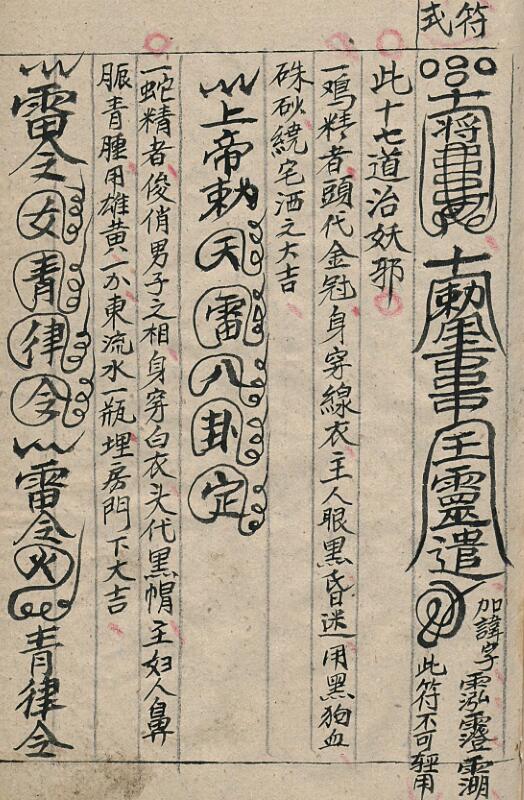 符式
加諱字
此符不可輕用
此十七道治妖邪
一鸡精者頭代金冠身穿線衣主人眼黑昏迷用黑狗血
硃砂繞宅洒之大吉
上帝勅天雷八卦定
一蛇精者俊俏男子之相身穿白衣头代黑帽主妇人鼻
脤青腫用雄黄一分東流水一瓶埋房門下大吉
雷令女青律令雷令火青律令